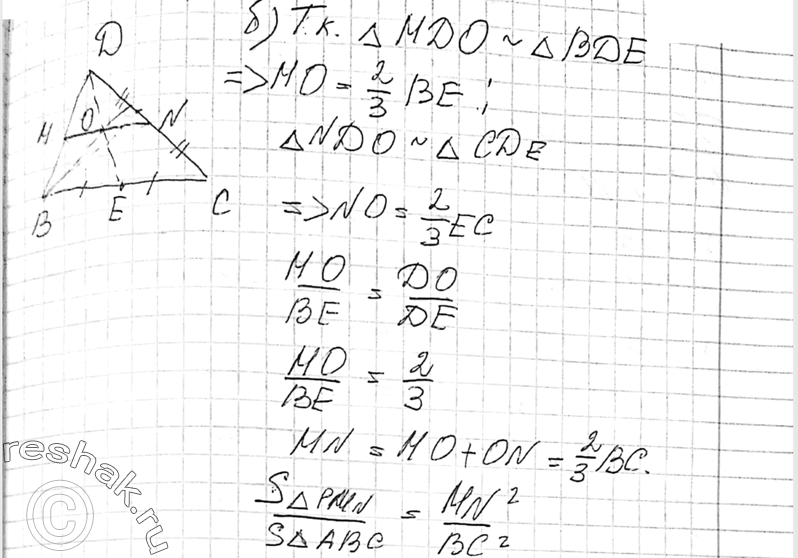 б) Т.к. △MDO ~ △BDE
=> MO = 2/3 BE;
△NDO ~ △CDE
=> NO = 2/3 EC
MO/BE = DO/DE
MO/BE = 2/3
MN = MO + ON = 2/3 BC.
S△PMN/S△ABC = MN²/BC²
D
M O N
B E C
reshak.ru
©